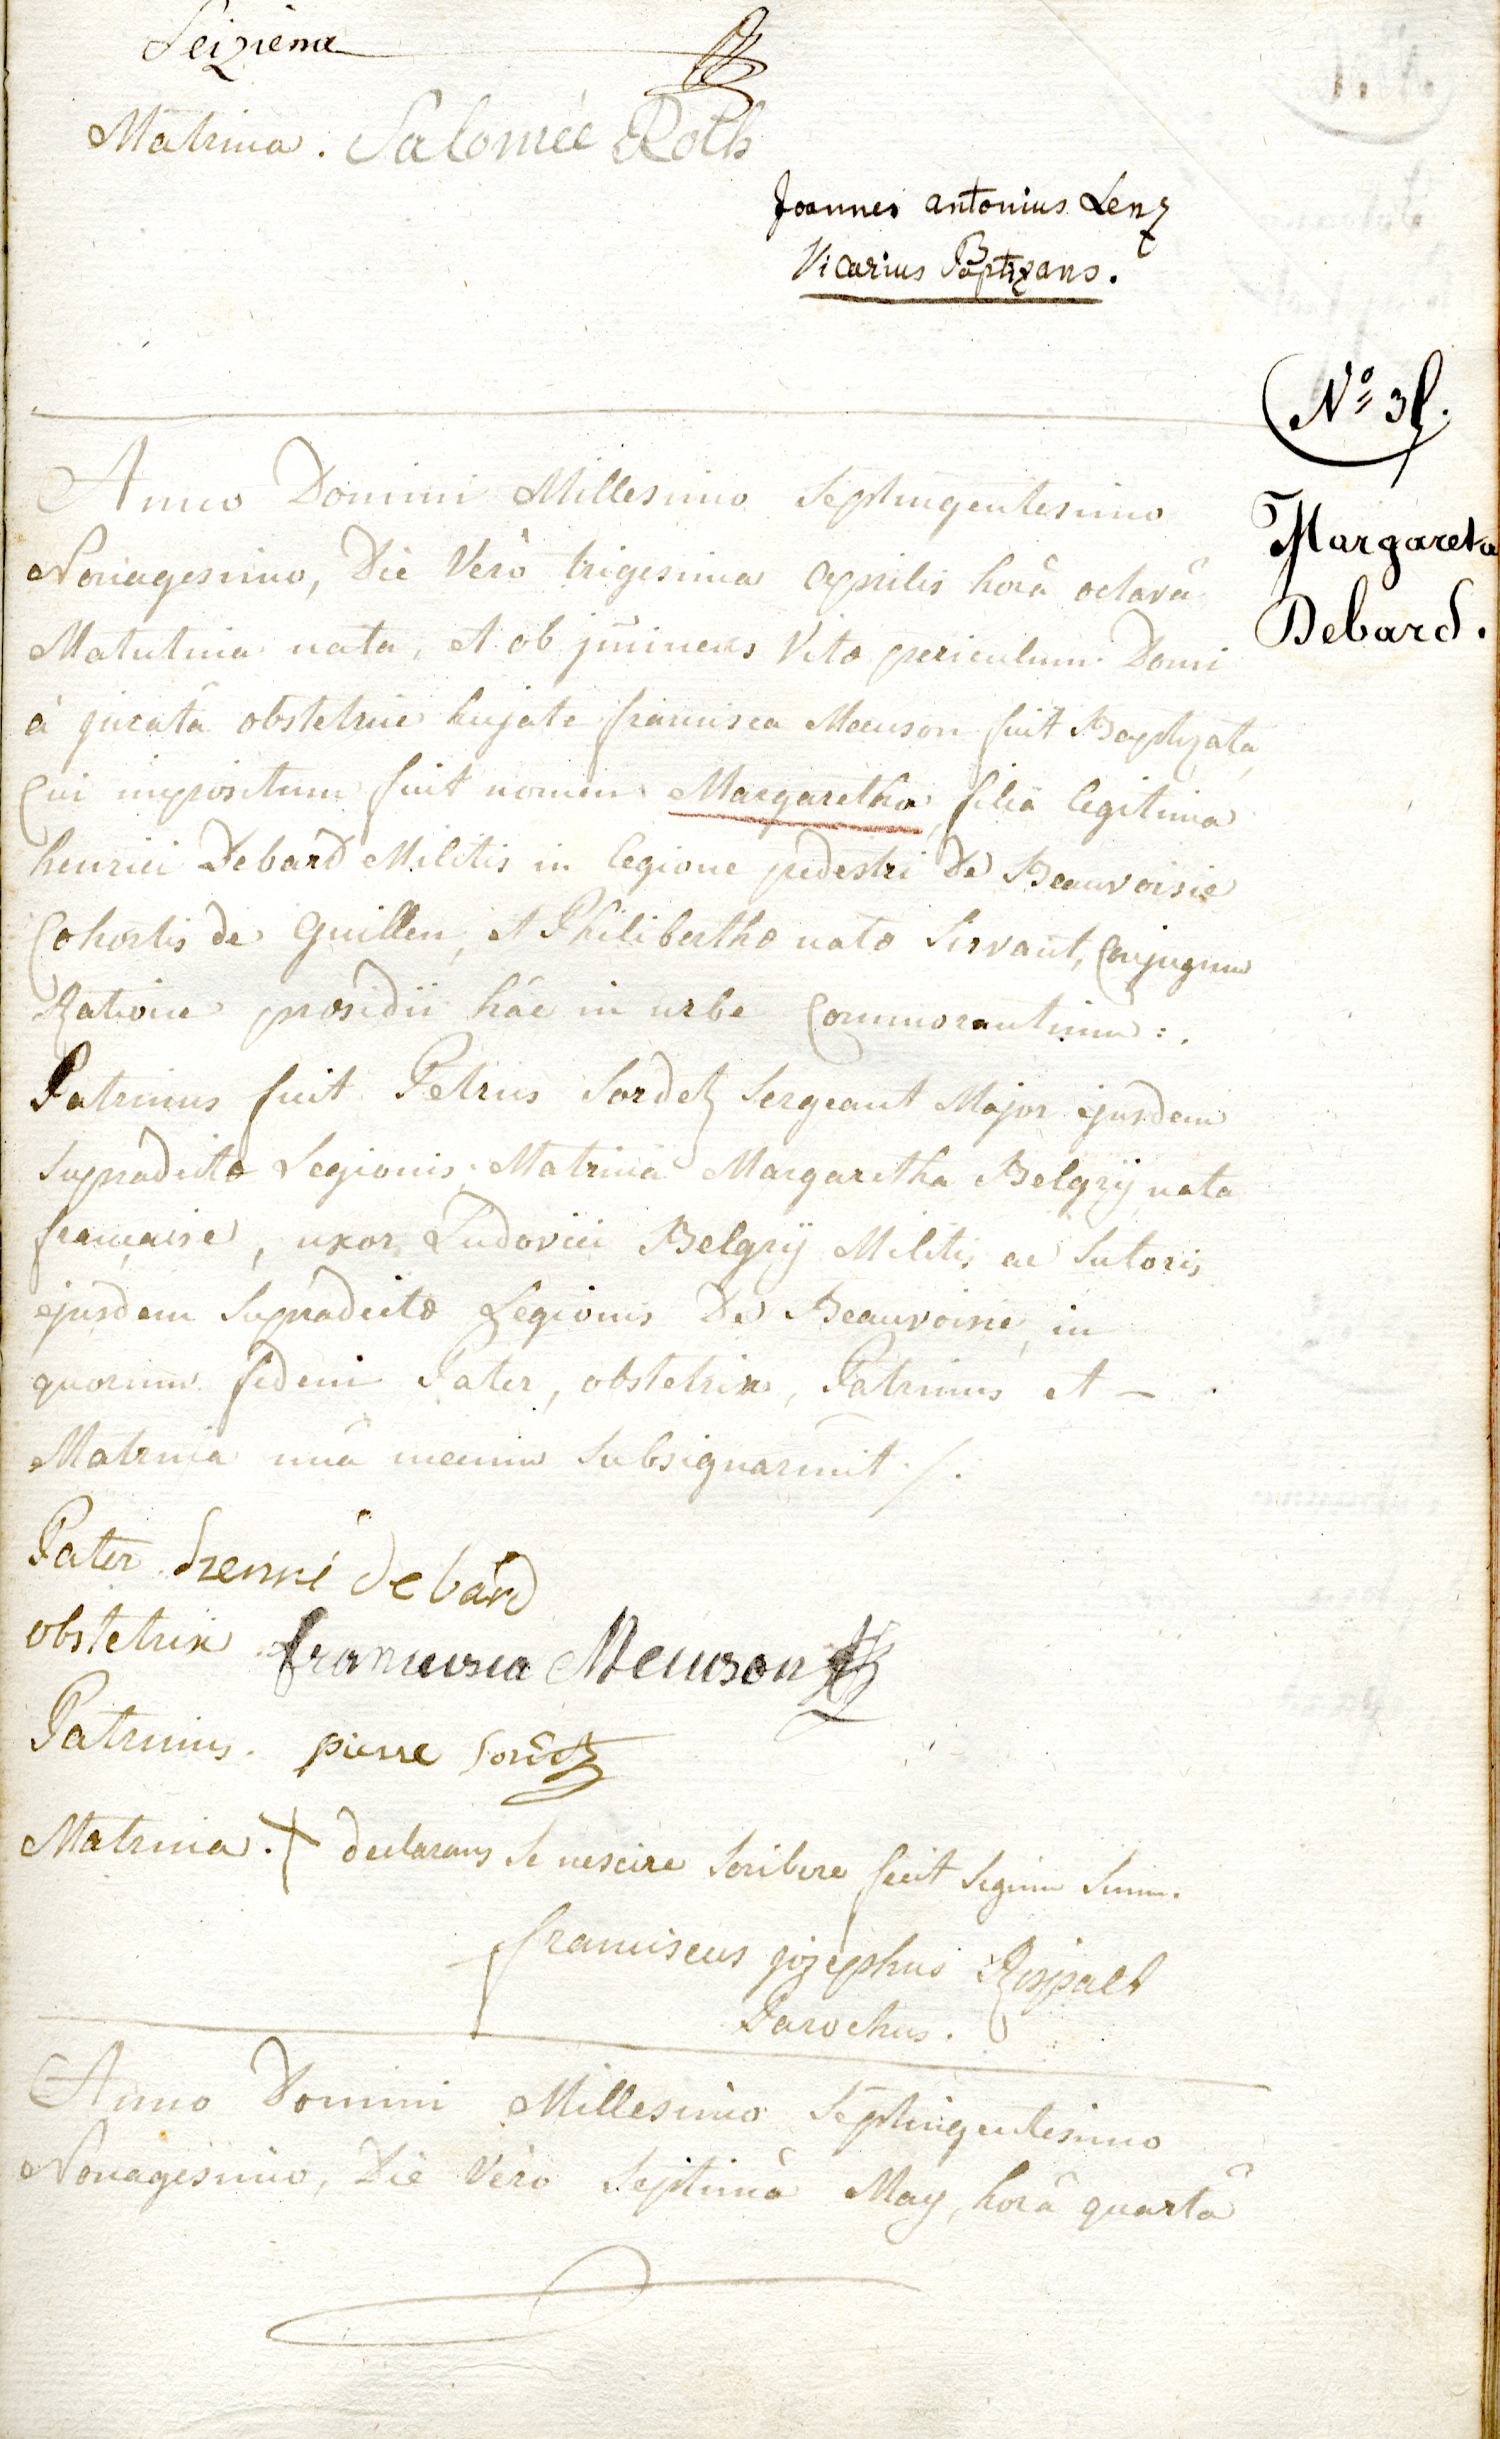 Seizieme
Matrina. Salomée Roth
Joannes antonius Lenz
Vicarius Baptizans.
Nº 31.
Margareta
Debard.
Anno Domini Millesimo Septingentesimo
Nonagesimo, Die Verò trigesima Aprilis horâ octavâ
Matutina nata, et ob jm̃inens Vitæ periculum Domi
à juratâ obstetrice hujate francisca Meuson fuit Baptizata,
Cui impositum fuit nomen Margaretha, filia legitima
henrici Debard Militis in legione pedestri De Beauvoisie
Cohortis de Guillen, et Philiberthæ natæ Servant, Conjugum
Ratione præsidii hâc in urbe Commorantium :.
Patrinus fuit Petrus Sordet Sergeant Major ejusdem
Supradictæ Legionis, Matrina Margaretha Belgrÿ nata
française, uxor Ludovici Belgrÿ Militis ac Sutoris
ejusdem Supradictæ Legionis De Beauvoisie, in
quorum fidem Pater, obstetrix, Patrinus et –
Matrina unâ mecum Subsignarunt ./.
Pater henri debard
obstetrix francisca Meuson
Patrinus. pierre Sordet
Matrina. + declarans Se nescire Scribere fecit Signum Suum.
franciscus josephus
Parochus.
Anno Domini Millesimo Septingentesimo
Nonagesimo, Die Vero Septimâ May, horâ quartâ